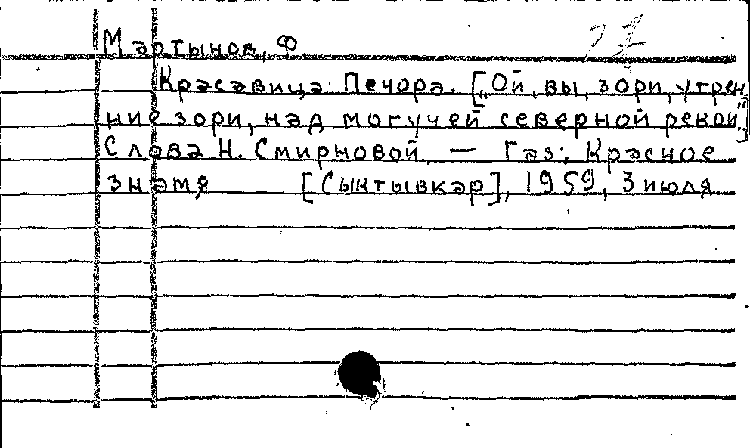 Мартынов, Ф
Красавица Печора. [„Ой, вы, зори, утрен
ние зори, над могучей северной рекой"]
Слова Н. Смирновой. — Газ: Красное
знамя [Сыктывкар], 1959, 3 июля